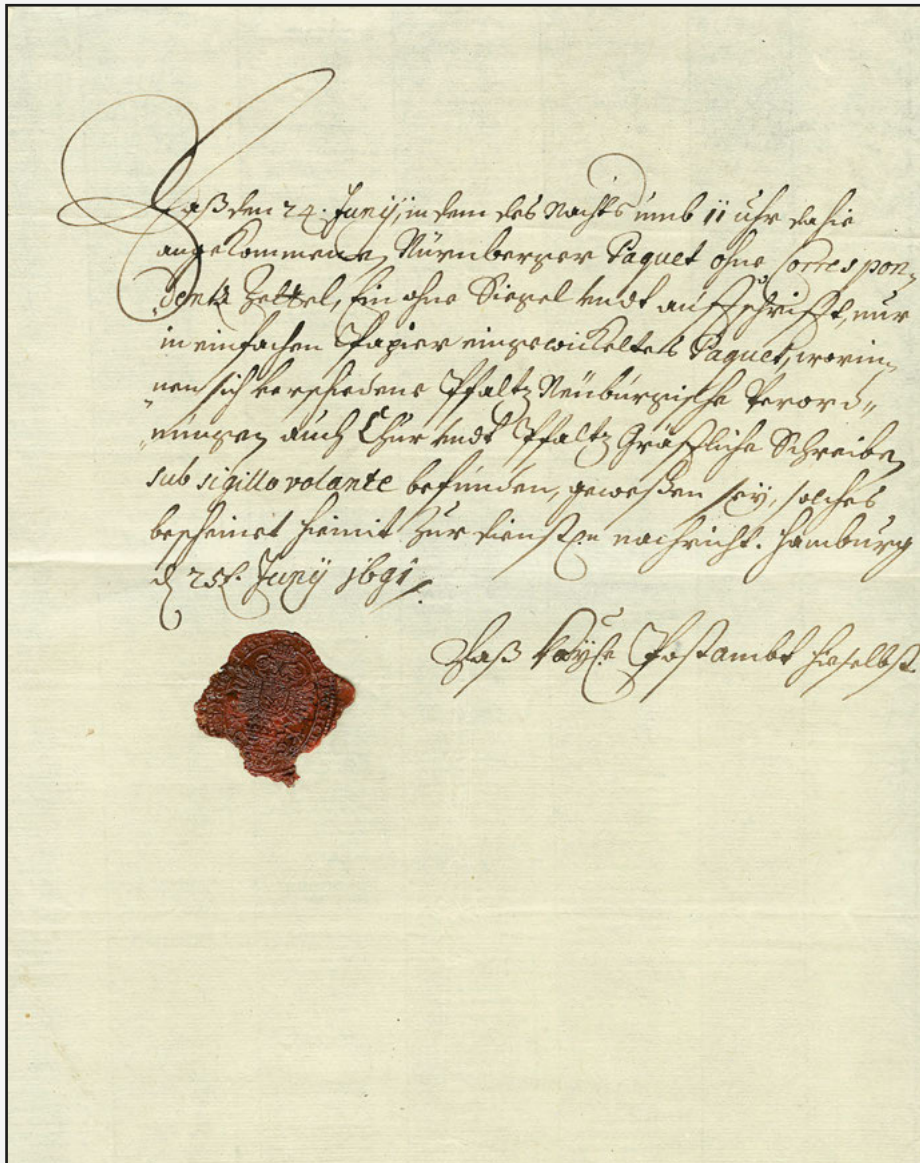 Daß den 24. Junÿ, in dem des Nachts umb 11 uhr dahie
angekommenen Nürnberger Paquet ohne Correspon-
dentz Zettel, Ein ohne Siegel undt auffschrifft, nur
in einfachen Papier eingewickeltes Paquet, worin-
nen sich verschiedene Pfaltz Neüburgische Verord-
nungen auch Chur undt Pfaltz Gräffliche Schreiben
sub sigillo volante befunden, geweßen seÿ, solches
bescheinet hiemit zur dienstn nachricht. Hamburg
d. 25t. Junÿ 1691.
Daß Kaÿsl. Postambt hieselbst